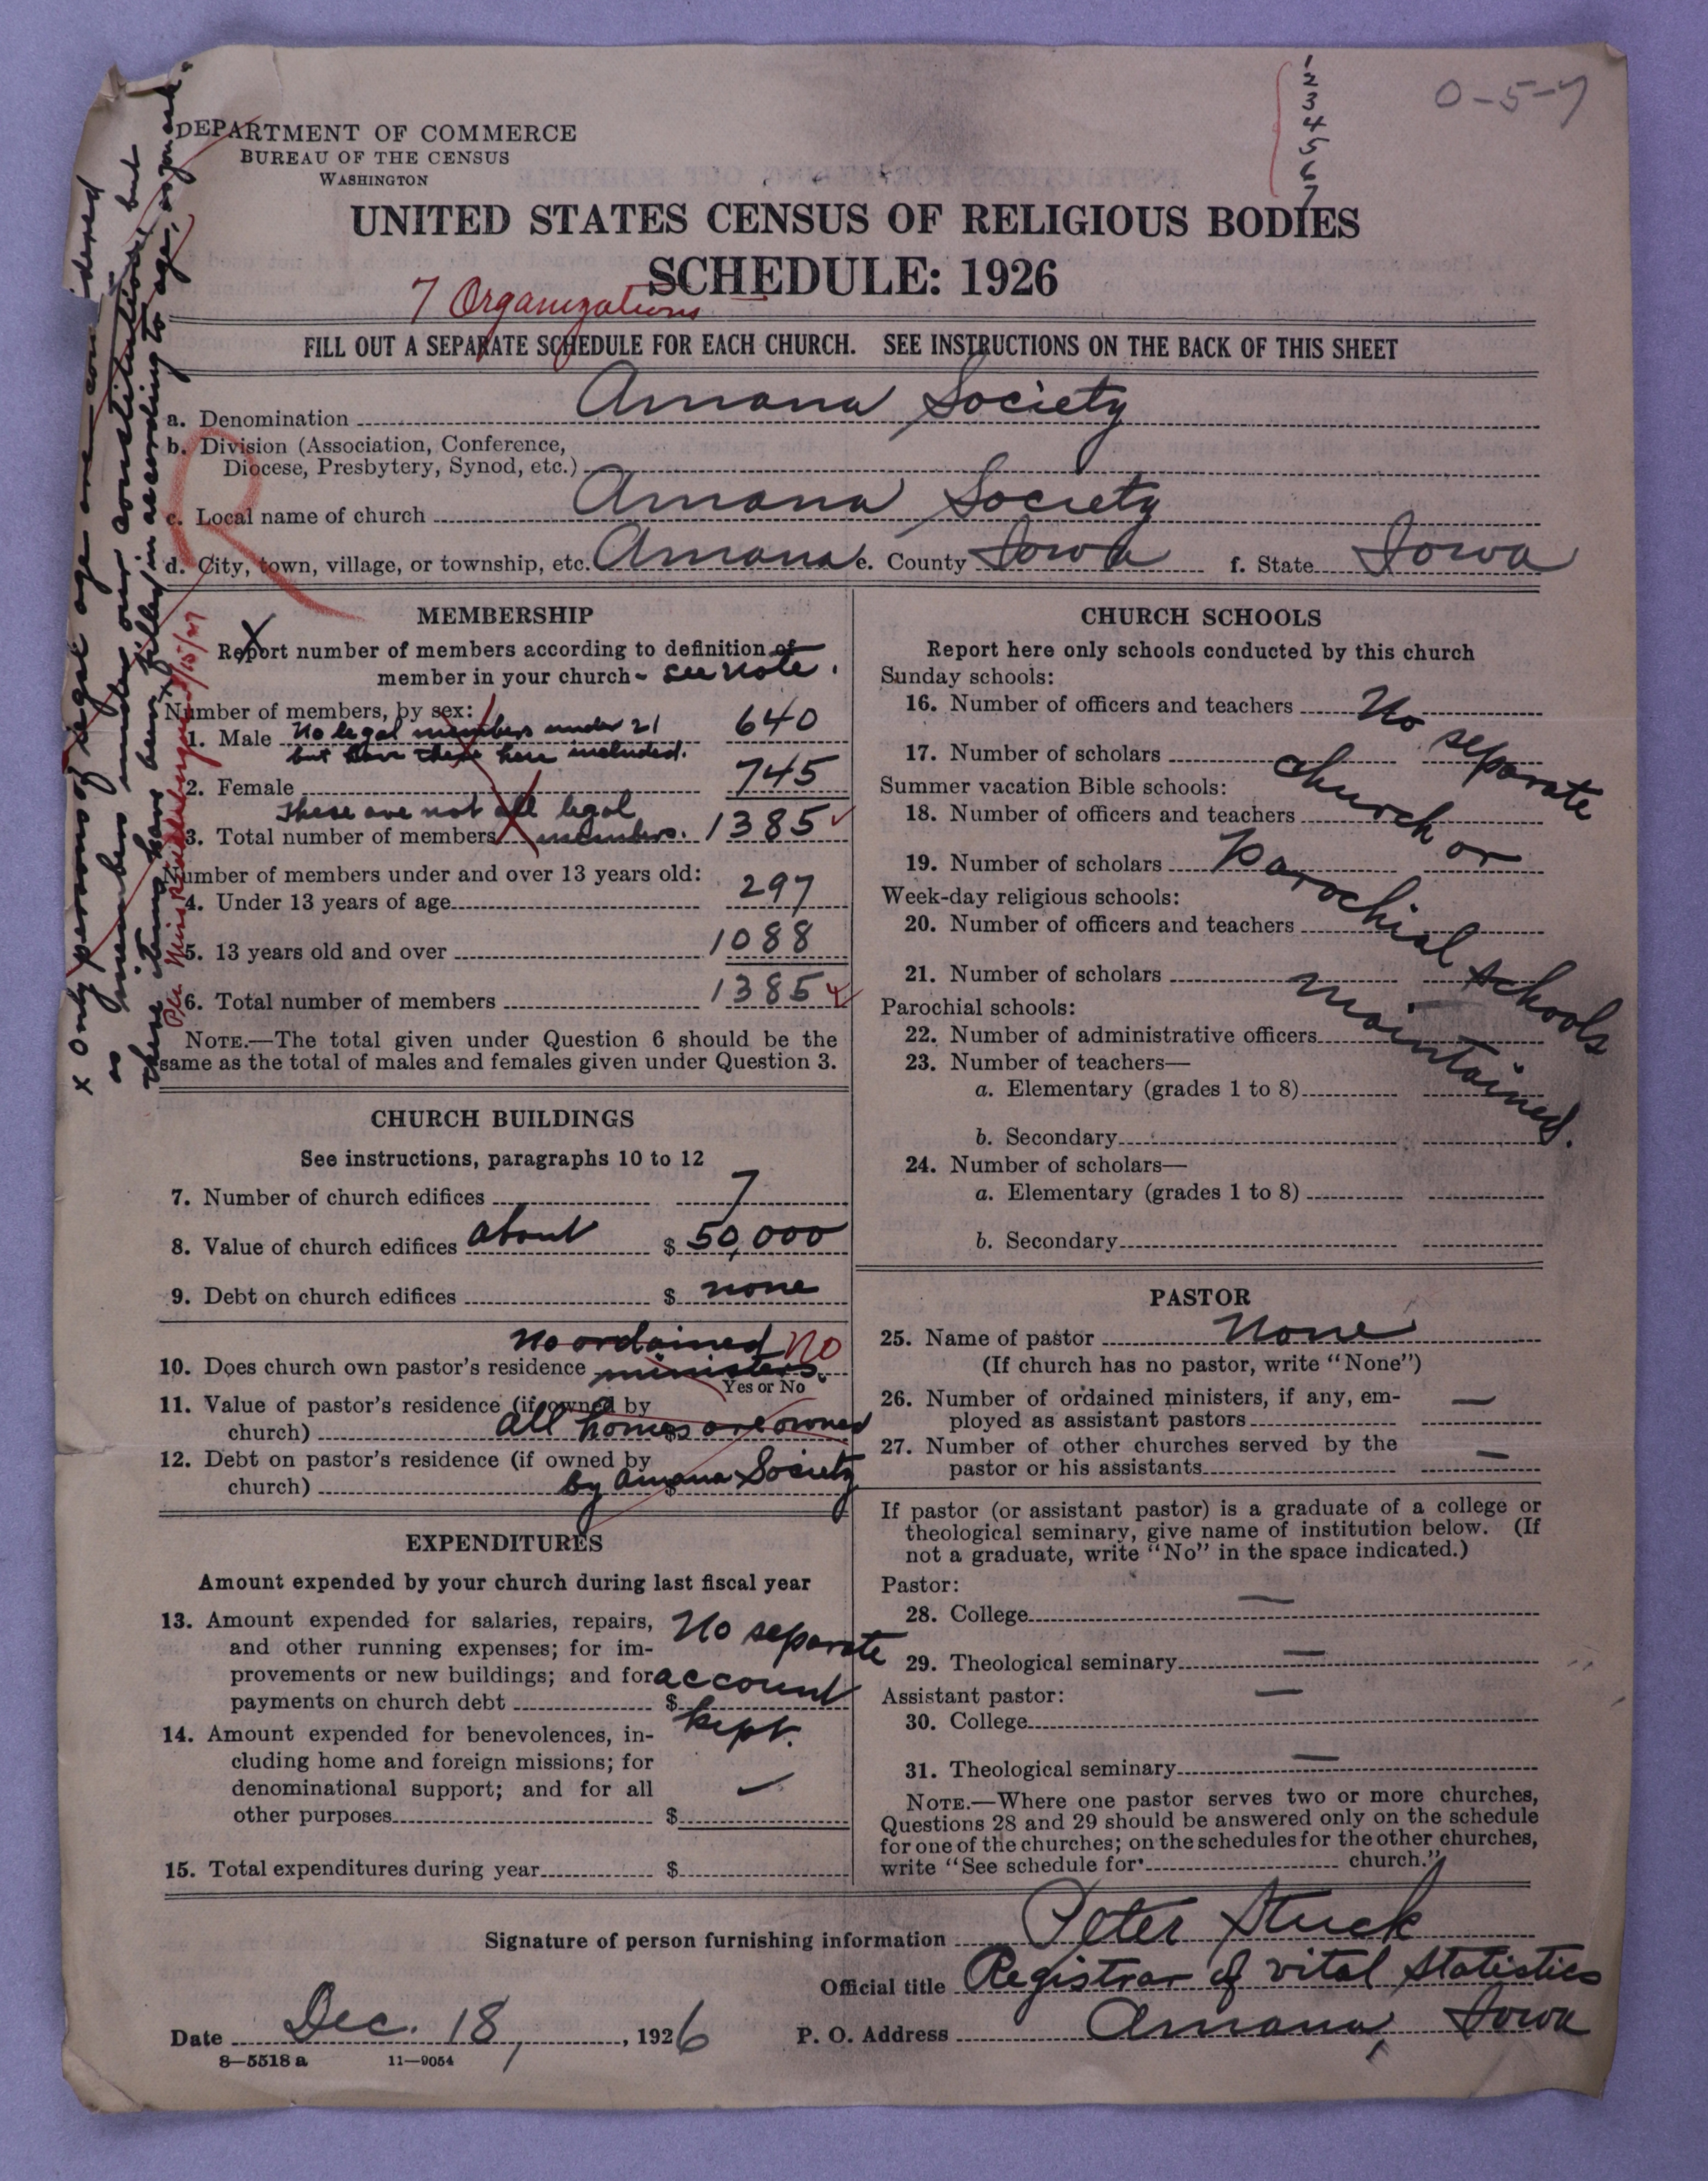 1
2
3
4
5
6
7
0-5-7
DEPARTMENT OF COMMERCE
BUREAU OF THE CENSUS
WASHINGTON
UNITED STATES CENSUS OF RELIGIOUS BODIES
SCHEDULE: 1926
7 Organizations
FILL OUT A SEPARATE SCHEDULE FOR EACH CHURCH. SEE INSTRUCTIONS ON THE BACK OF THIS SHEET
a. Denomination Amana Society
b. Division (Association, Conference,
Diocese, Presbytery, Synod, etc.)
c. Local name of church Amana Society
d. City, town, village, or township, etc. Amana e. County Iowa f. State Iowa
x Only persons of legal age are con-idered
as members under our constitution, but
these items have been filled in according to age, as you ask.
R
MEMBERSHIP
x
Report number of members according to definition of
member in your church - see note.
Number of members, by sex:
1. Male No legal members under 21 640
but have these here included.
2. Female 745
These are not all legal
3. Total number of members members. 1385
Number of members under and over 13 years old:
4. Under 13 years of age 297
5. 13 years old and over 1088
6. Total number of members 1385
NOTE.—The total given under Question 6 should be the
same as the total of males and females given under Question 3.
CHURCH BUILDINGS
See instructions, paragraphs 10 to 12
7. Number of church edifices 7
8. Value of church edifices about $ 50,000
9. Debt on church edifices $ none
No ordained No
10. Does church own pastor's residence ministers.
Yes or No
11. Value of pastor's residence (if owned by
church) all homes are owned
12. Debt on pastor's residence (if owned by
church) by Amana Society
EXPENDITURES
Amount expended by your church during last fiscal year
13. Amount expended for salaries, repairs, No separate
and other running expenses; for im-
provements or new buildings; and for account
payments on church debt $
kept.
14. Amount expended for benevolences, in-
cluding home and foreign missions; for
denominational support; and for all
other purposes $
15. Total expenditures during year $
CHURCH SCHOOLS
Report here only schools conducted by this church
Sunday schools:
16. Number of officers and teachers No
separate
17. Number of scholars church or
Summer vacation Bible schools:
18. Number of officers and teachers
19. Number of scholars Parochial schools
Week-day religious schools:
20. Number of officers and teachers
21. Number of scholars maintained.
Parochial schools:
22. Number of administrative officers
23. Number of teachers—
a. Elementary (grades 1 to 8)
b. Secondary
24. Number of scholars—
a. Elementary (grades 1 to 8)
b. Secondary
PASTOR
25. Name of pastor None
(If church has no pastor, write "None")
26. Number of ordained ministers, if any, em-
ployed as assistant pastors —
27. Number of other churches served by the
pastor or his assistants —
If pastor (or assistant pastor) is a graduate of a college or
theological seminary, give name of institution below. (If
not a graduate, write "No" in the space indicated.)
Pastor:
28. College —
29. Theological seminary —
Assistant pastor:
30. College —
31. Theological seminary —
NOTE.—Where one pastor serves two or more churches,
Questions 28 and 29 should be answered only on the schedule
for one of the churches; on the schedules for the other churches,
write "See schedule for church."
Signature of person furnishing information Peter Stuck
Official title Registrar of vital Statistics
Date Dec. 18, 1926 P. O. Address Amana, Iowa
8—5518 a 11—9054